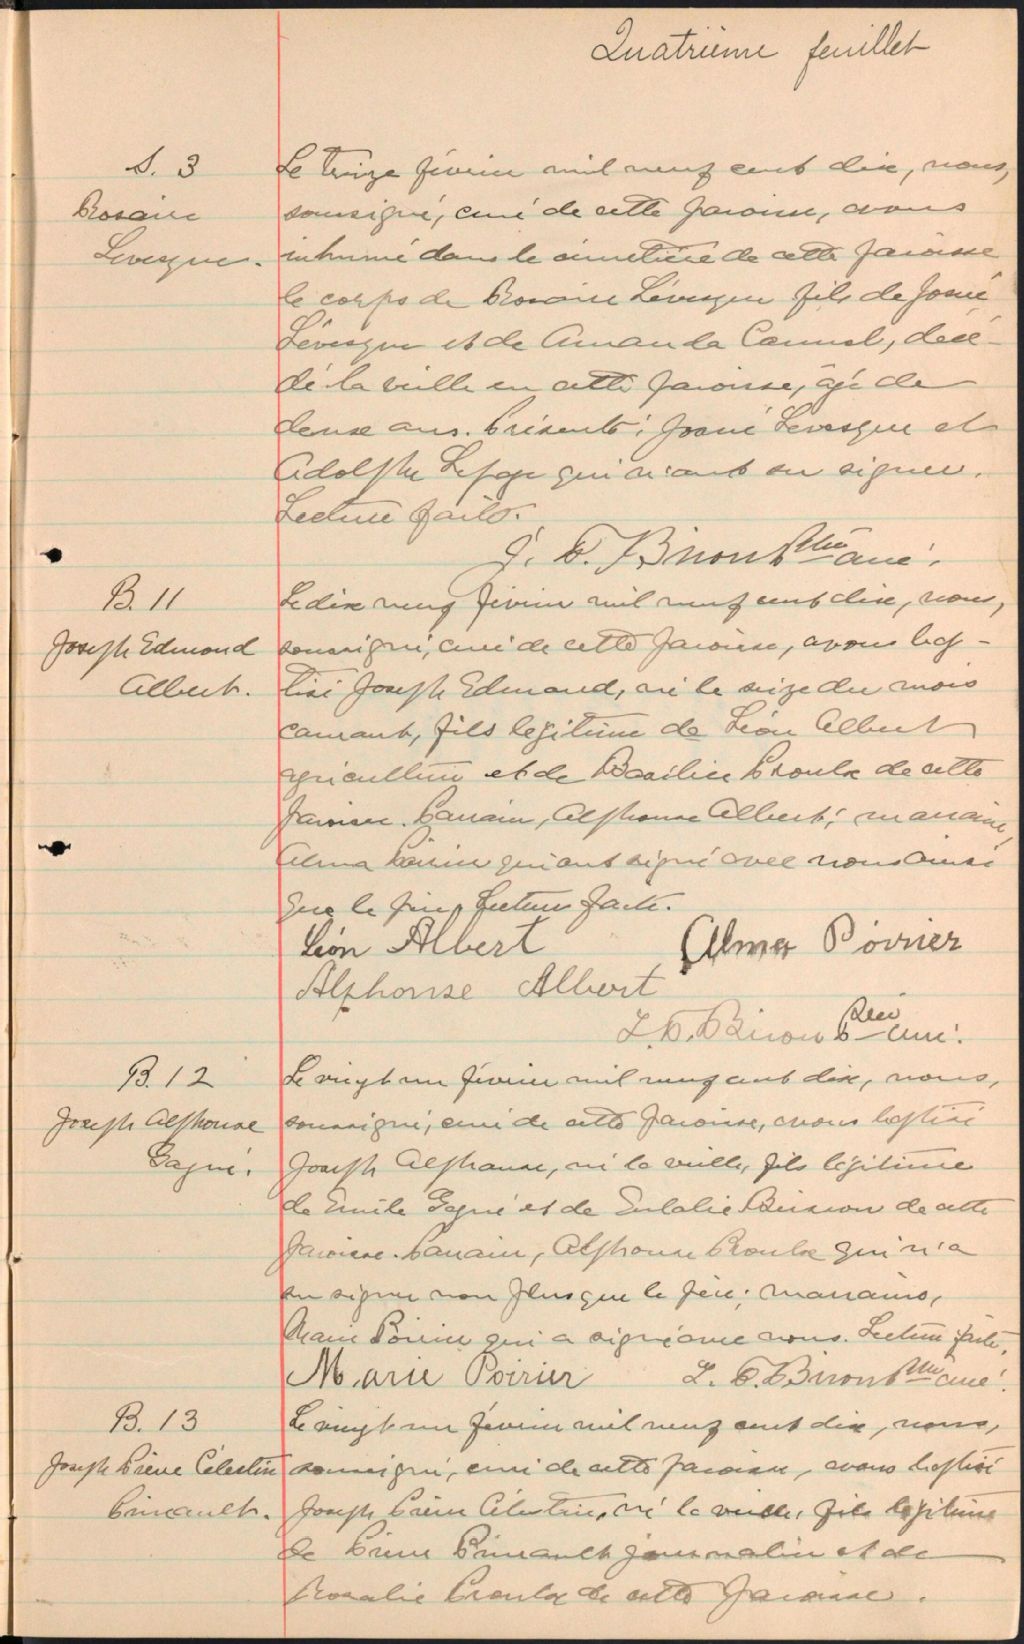 Quatrième feuillet
S. 3
Rosaire
Levesque.
Le treize février mil neuf cent dix, nous,
soussigné, curé de cette paroisse, avons
inhumé dans le cimetière de cette paroisse
le corps de Rosaire Lévesque fils de Josué
Lévesque et de Amanda Canuel, décé-
dé la veille en cette paroisse, âgé de
deux ans. Présents: Josué Levesque et
Adolphe Lepage qui n'ont su signer.
Lecture faite.
Ptre curé.
B. 11
Joseph Edmond
Albert.
Le dix neuf février mil neuf cent dix, nous,
soussigné, curé de cette paroisse, avons bap-
tisé Joseph Edmond, né le seize du mois
courant, fils légitime de Léon Albert
agriculteur et de Basilice Proulx de cette
paroisse. Parrain, Alphonse Albert; marraine,
Alma Poirier qui ont signé avec nous ainsi
que le père. Lecture faite.
Léon Albert Alma Poirier
Alphonse Albert
Ptre curé.
B. 12
Joseph Alphonse
Gagné.
Le vingt un février mil neuf cent dix, nous,
soussigné, curé de cette paroisse, avons baptisé
Joseph Alphonse, né la veille, fils légitime
de Emile Gagné et de Eulalie Buisson de cette
paroisse. Parrain, Alphonse Proulx qui n'a
su signer non plus que le père; marraine,
Marie Poirier qui a signé avec nous. Lecture faite.
Marie Poirier Ptre curé.
B. 13
Joseph Pierre Célestin
Pineault.
Le vingt un février mil neuf cent dix, nous,
soussigné, curé de cette paroisse, avons baptisé
Joseph Pierre Célestin, né la veille, fils légitime
de Pierre Pineault journalier et de
Rosalie Proulx de cette paroisse.